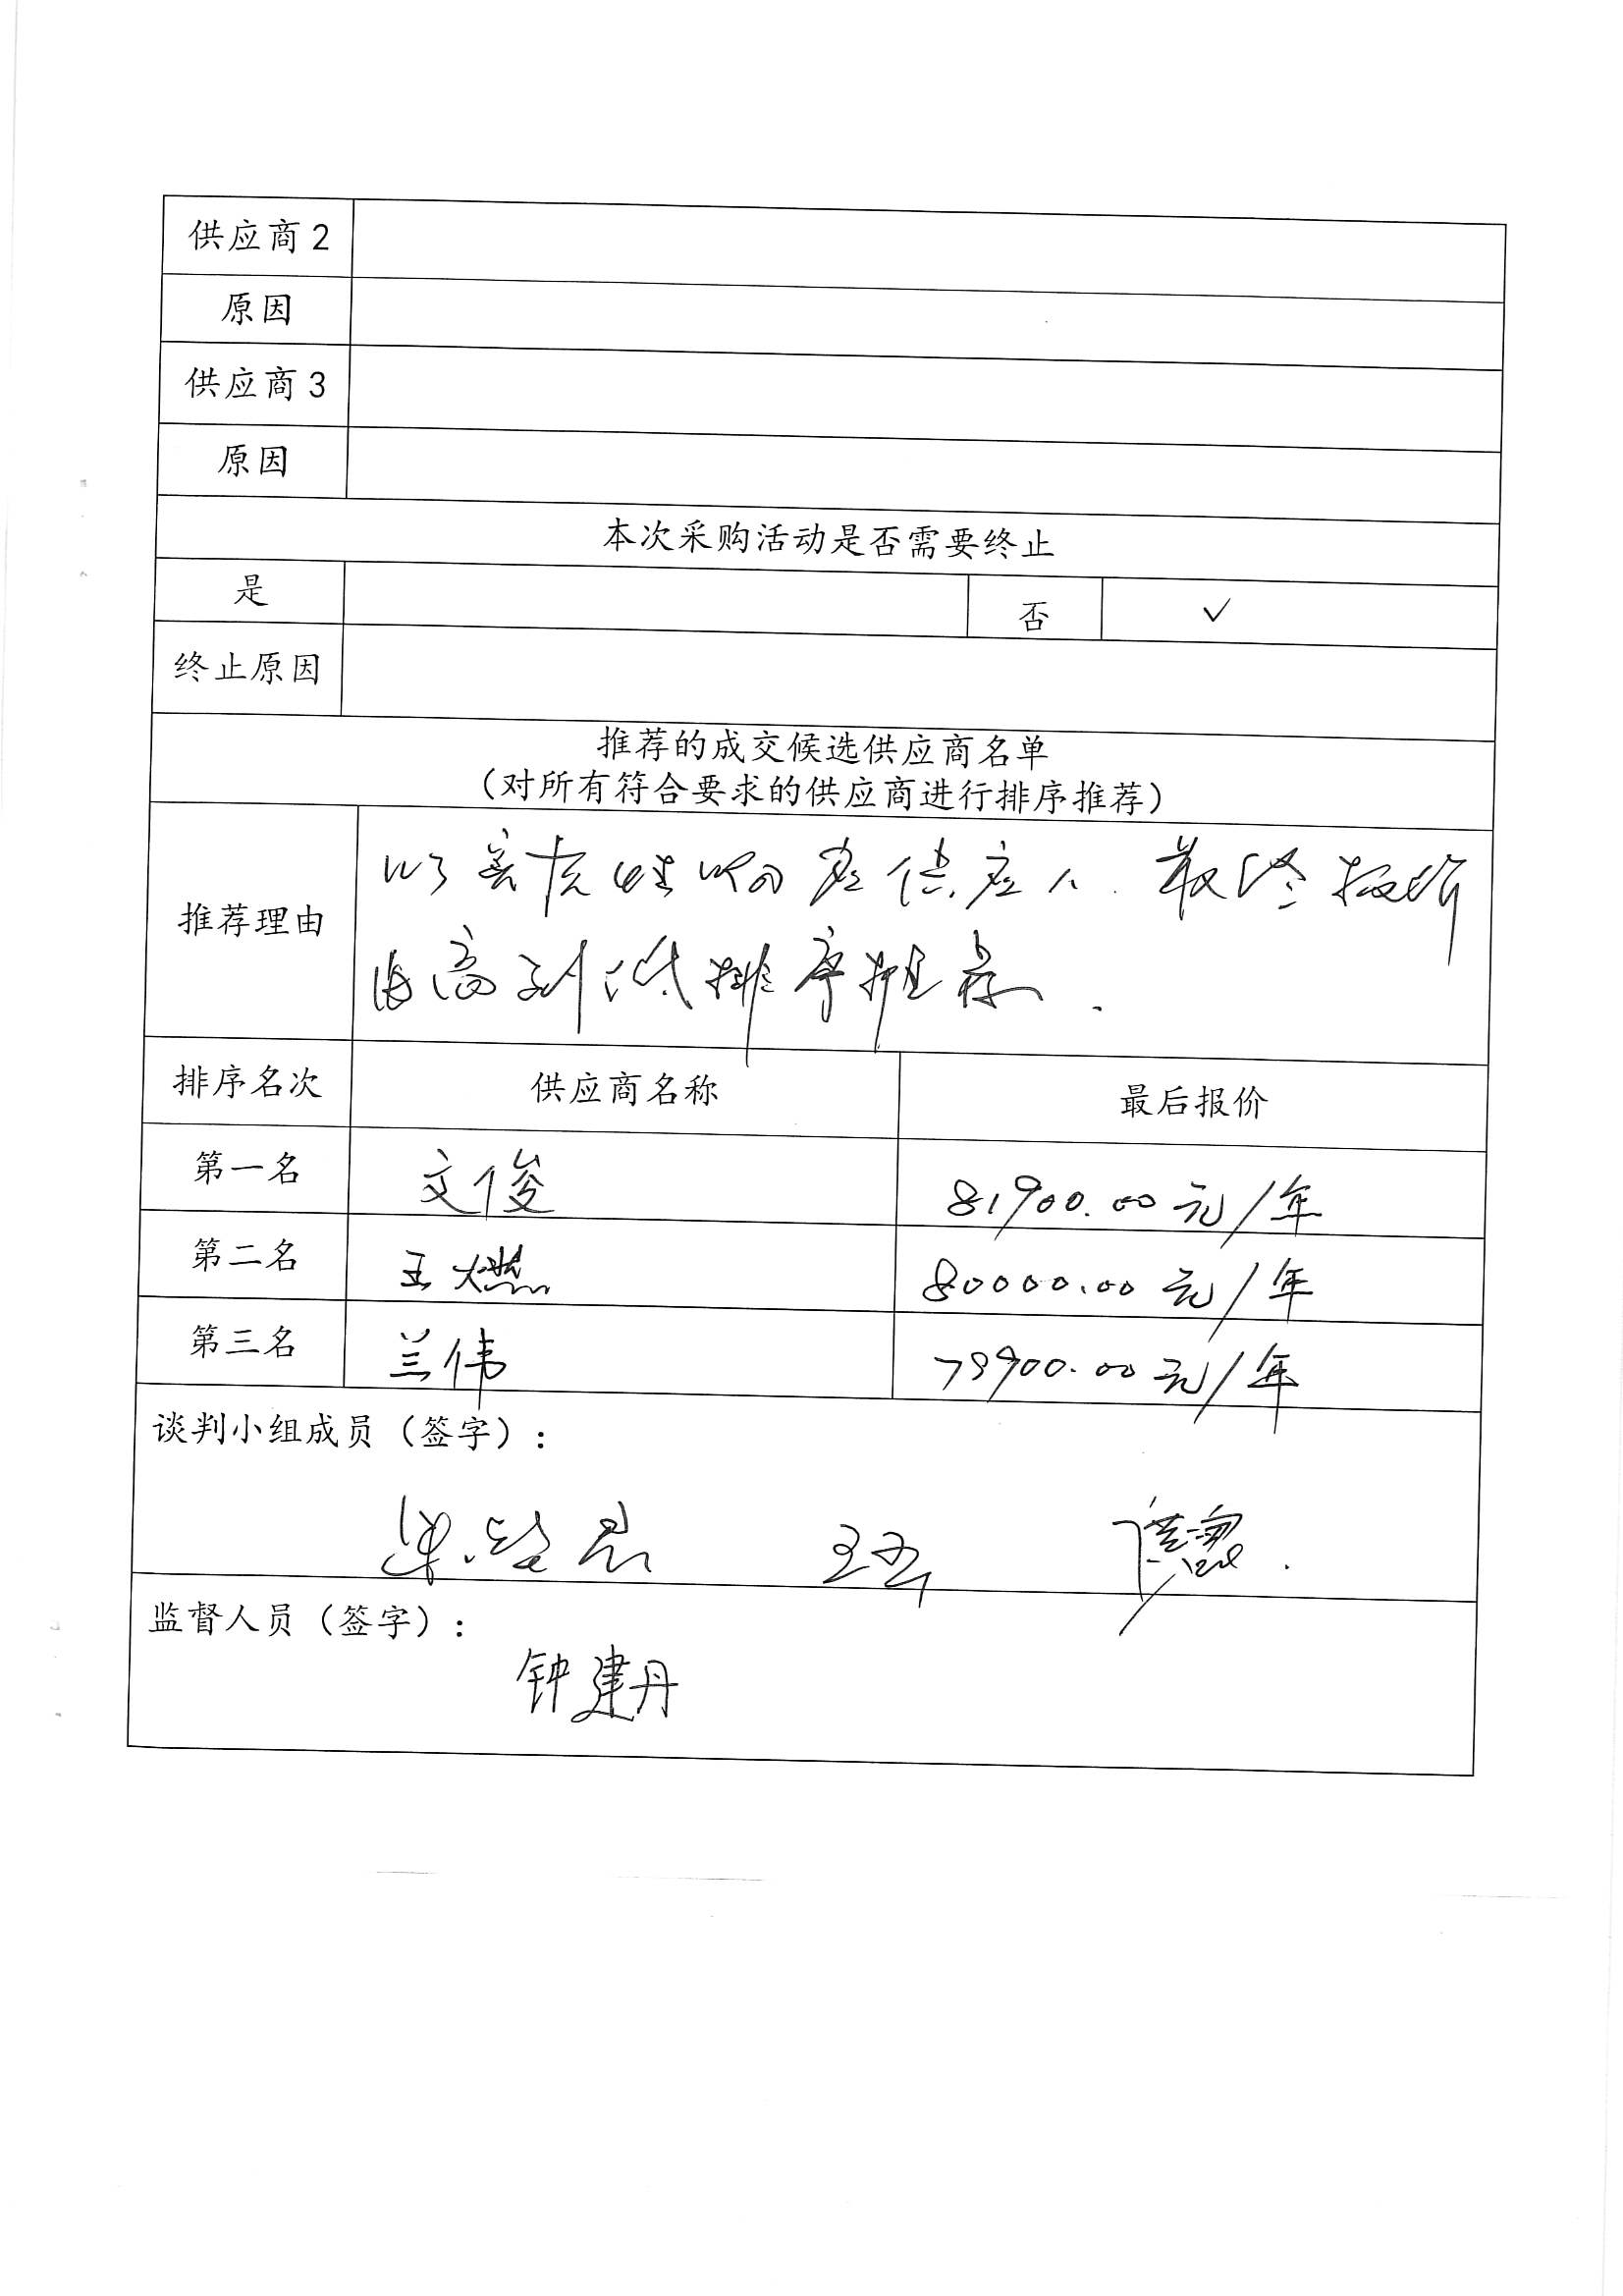 供应商2
原因
供应商3
原因
本次采购活动是否需要终止
是 否 ✓
终止原因
推荐的成交候选供应商名单
（对所有符合要求的供应商进行排序推荐）
推荐理由
以实质性响应供应人.最终报价
由高到低排序推荐.
排序名次 供应商名称 最后报价
第一名 文俊 81900.00元/年
第二名 王燃 80000.00元/年
第三名 兰伟 79900.00元/年
谈判小组成员（签字）：
监督人员（签字）：
钟建丹